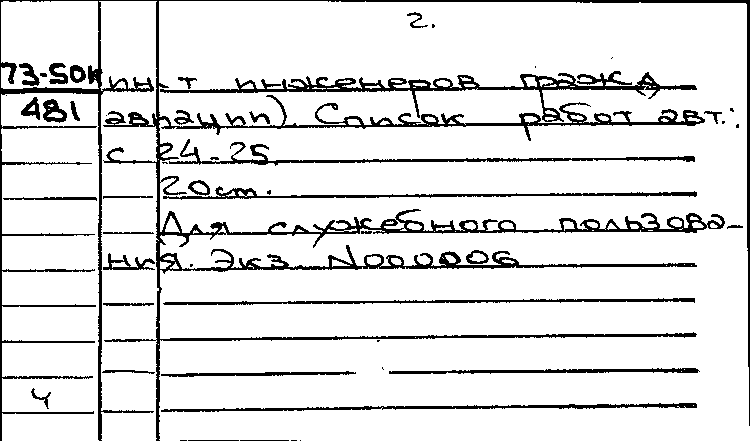 2.
73-50к
481
ин-т инженеров гражд
авиации). Список работ авт.:
с. 24-25.
20см.
Для служебного пользова-
ния. Экз. N000006
4